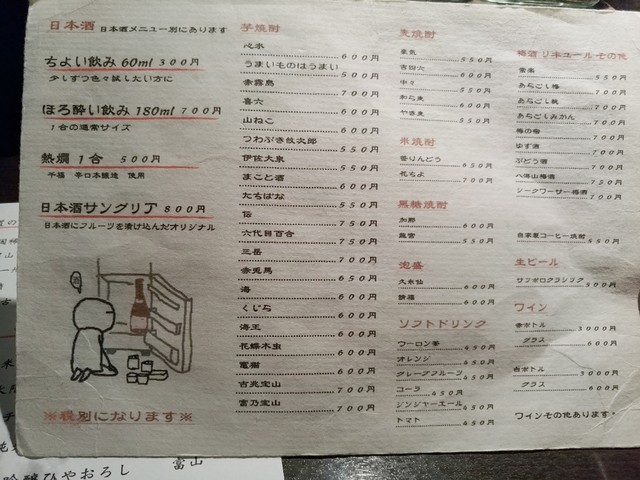 日本酒 日本酒メニュー別にあります
ちょい飲み 60ml 300円
少しずつ色々試したい方に
ほろ酔い飲み 180ml 700円
1合の通常サイズ
熱燗 1合 500円
千福 辛口本醸造 使用
日本酒サングリア 800円
日本酒にフルーツを漬け込んだオリジナル
酒
※税別になります※
芋焼酎
心水 600円
うまいものはうまい 500円
赤霧島 700円
喜六 600円
山ねこ 600円
つわぶき紋次郎 550円
伊佐大泉 550円
まこと酒 600円
たちばな 500円
伝 750円
六代目百合 750円
三岳 700円
赤兎馬 650円
海 600円
くじら 600円
海王 600円
花蝶木虫 600円
竃猫 600円
吉兆宝山 700円
富乃宝山 700円
麦焼酎
550円
吉四六 600円
中々 550円
和ら麦 600円
やき麦 550円
米焼酎
笹りんどう 650円
花ちよ 710円
黒糖焼酎
加那 600円
龍宮 550円
泡盛
久米仙 600円
600円
ソフトドリンク
ウーロン茶 450円
オレンジ 450円
グレープフルーツ 450円
コーラ 450円
ジンジャーエール 450円
トマト 450円
梅酒 リキュールその他
550円
あらごし梅 700円
あらごし桃 700円
あらごしみかん 700円
梅の宿 700円
ゆず酒 700円
ぶどう酒 700円
八海山梅酒 700円
シークワーサー梅酒 700円
自家製コーヒー焼酎 550円
生ビール
サッポロクラシック 500円
ワイン
赤ボトル 3000円
グラス 600円
白ボトル 3000円
グラス 600円
ワインその他あります
米
吟醸ひやおろし
富山